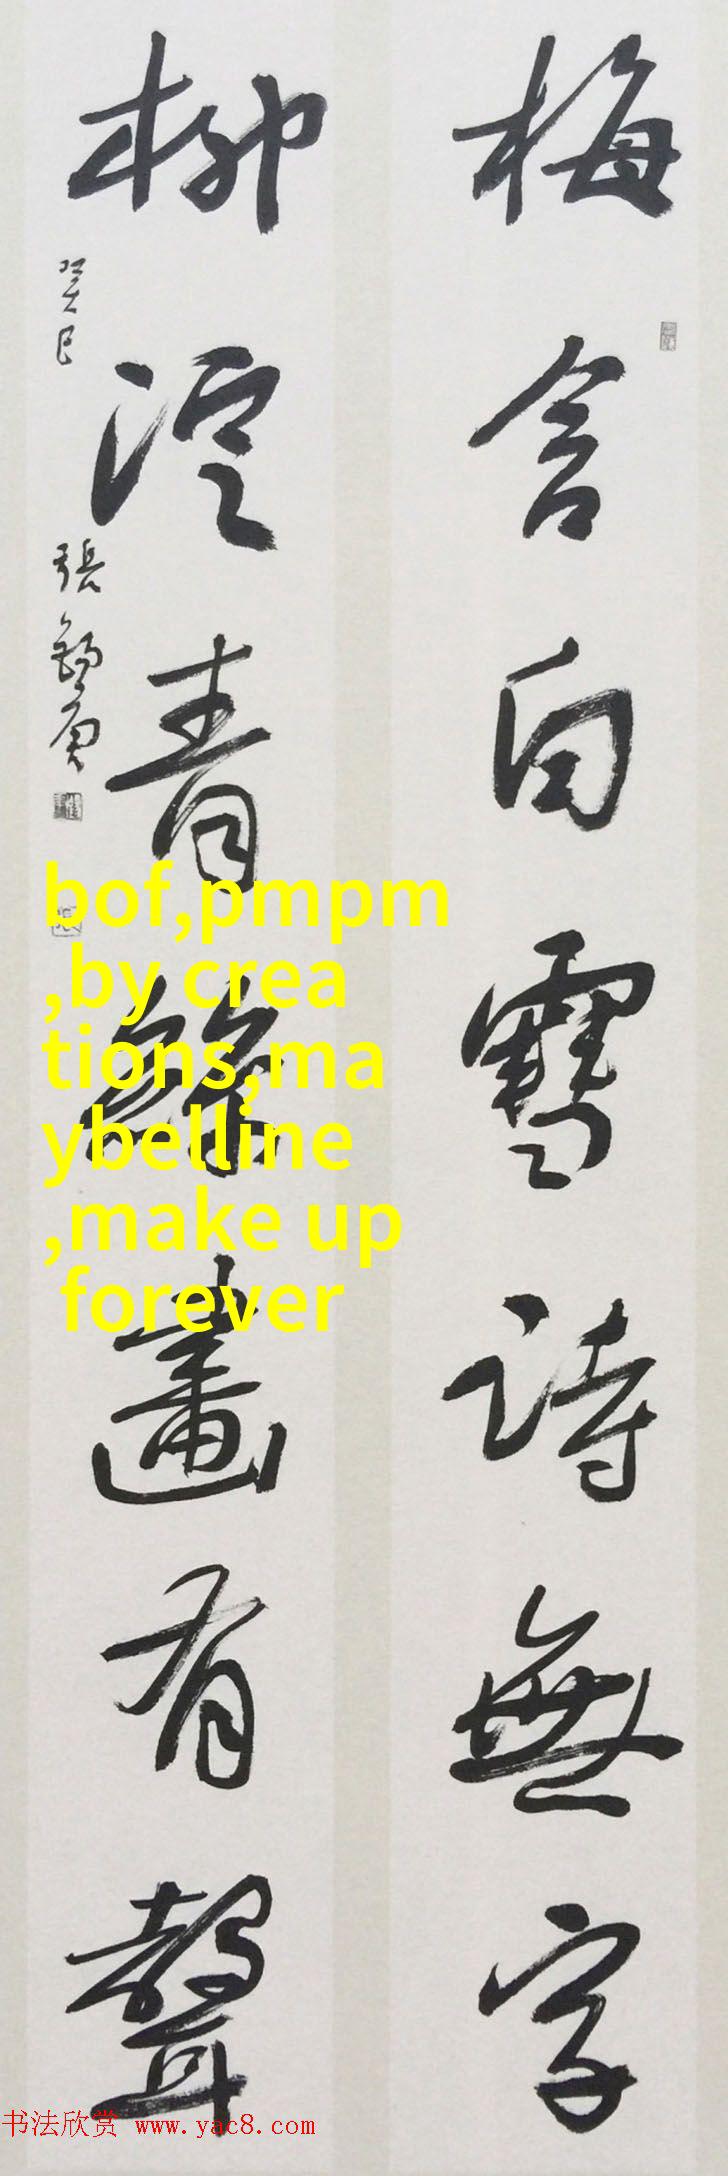 梅含白雪詩無字
柳浥青絲畫有聲
癸巳
張
bof,pmpm
,by crea
tions,ma
ybelline
,make up
forever
书法欣赏 www.yac8.com